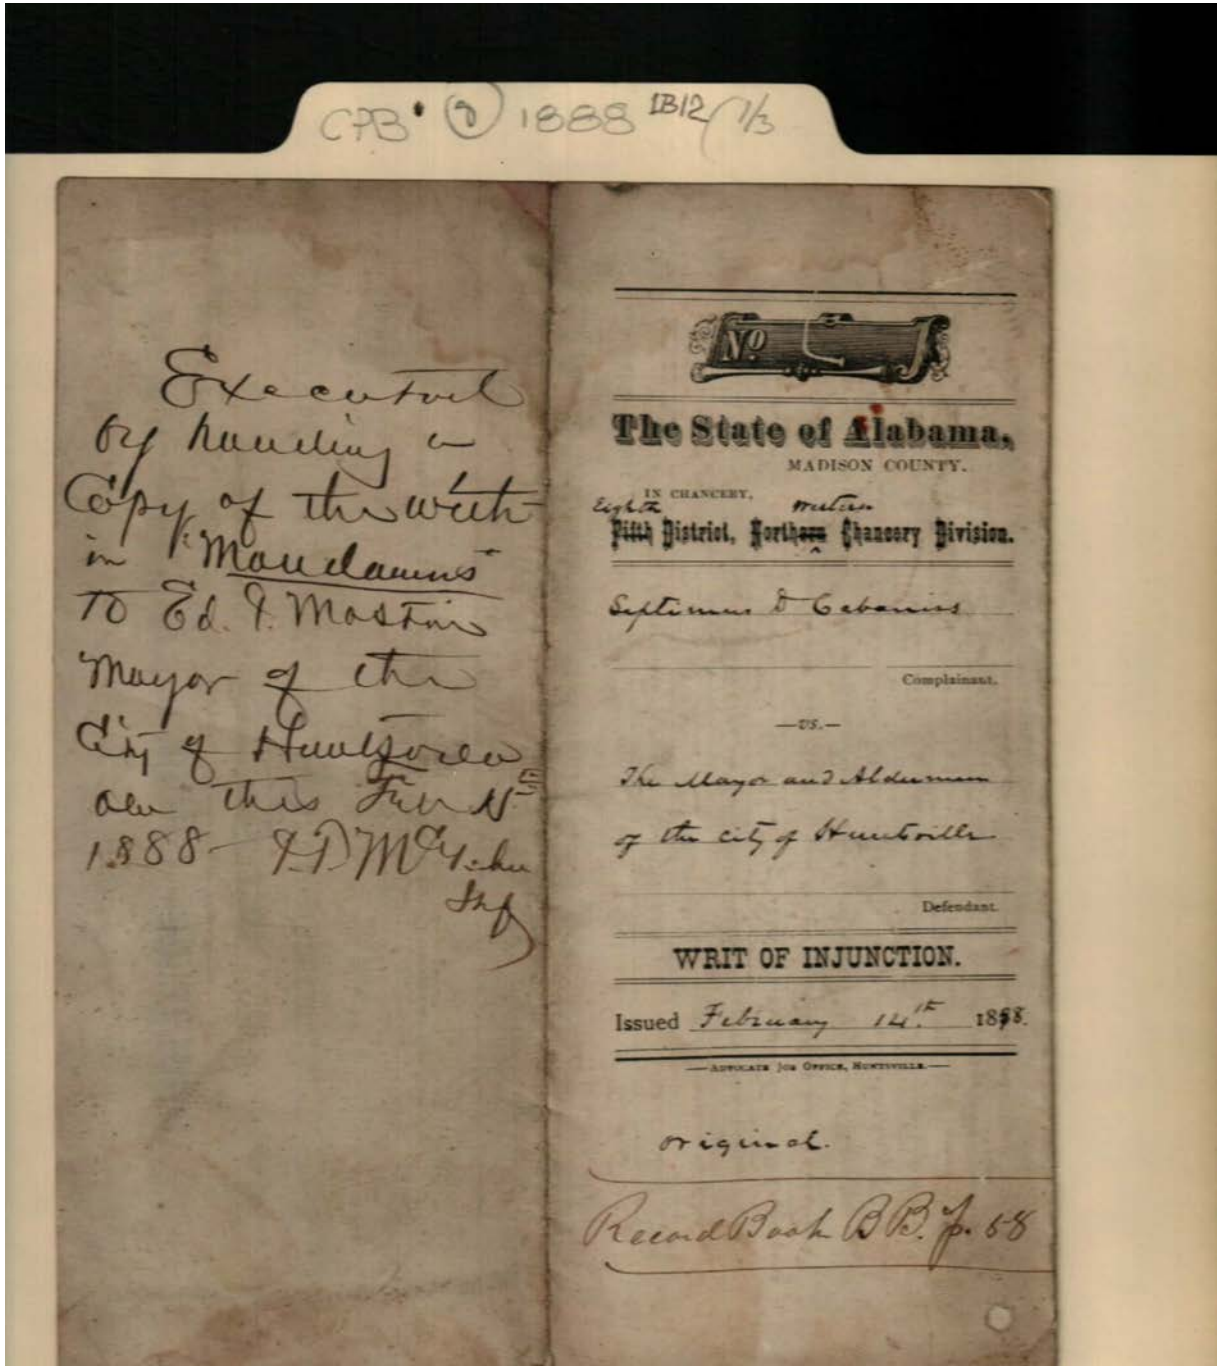 CPB 8 1888 1B12 1/3
Executed
by handing a
Copy of the with
in "Mandamus"
to Ed. I. Mastin
Mayor of the
City of Huntsville
on this Feb 15th
1888—
Shff
No
The State of Alabama,
MADISON COUNTY.
IN CHANCERY,
Eighth Western
Fifth District, Northern Chancery Division.
Septimus D Cabaniss
Complainant.
—vs.—
The Mayor and Aldermen
of the City of Huntsville
Defendant.
WRIT OF INJUNCTION.
Issued February 14th. 1888.
—ADVOCATE JOB OFFICE, HUNTSVILLE.—
original.
Record Book BB. p. 58